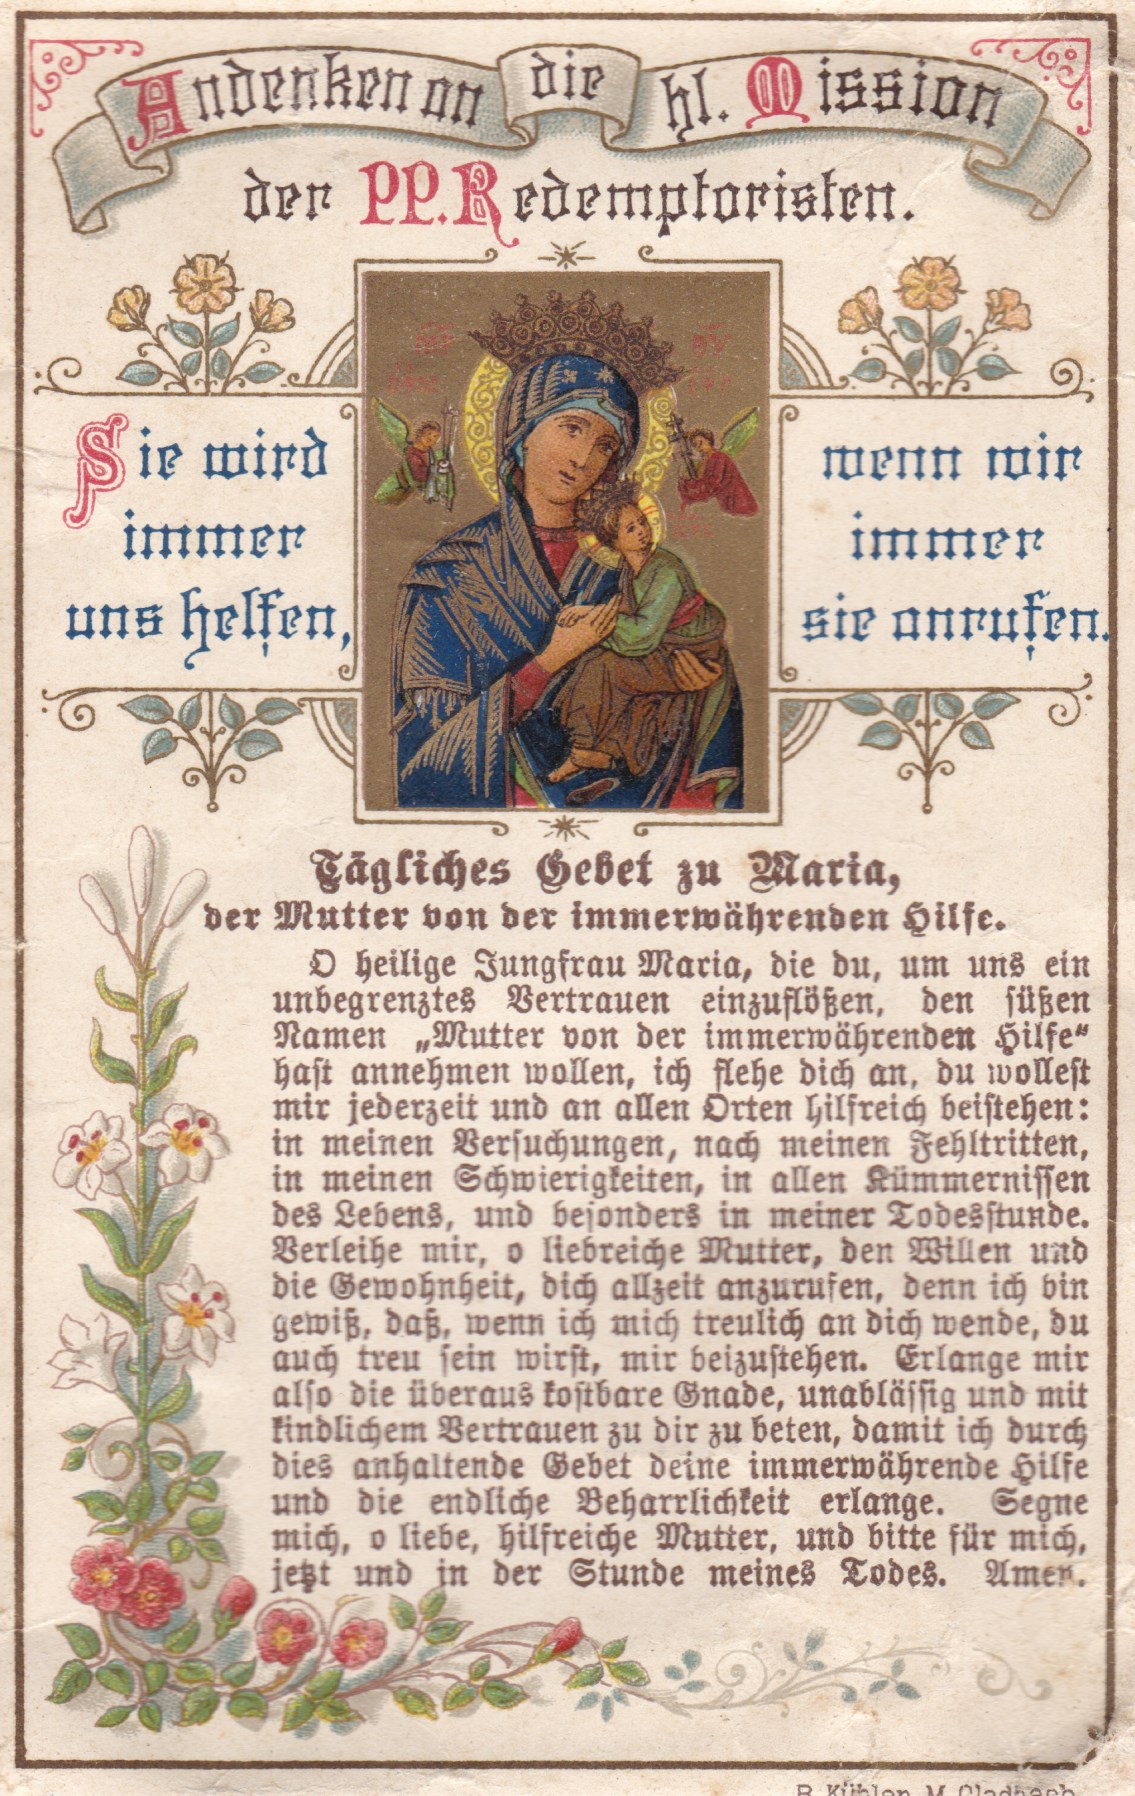 Andenken an die hl. Mission
der PP. Redemptoristen.
Sie wird
immer
uns helfen,
wenn wir
immer
sie anrufen.
Tägliches Gebet zu Maria,
der Mutter von der immerwährenden Hilfe.
O heilige Jungfrau Maria, die du, um uns ein
unbegrenztes Vertrauen einzuflößen, den süßen
Namen „Mutter von der immerwährenden Hilfe“
hast annehmen wollen, ich flehe dich an, du wollest
mir jederzeit und an allen Orten hilfreich beistehen:
in meinen Versuchungen, nach meinen Fehltritten,
in meinen Schwierigkeiten, in allen Kümmernissen
des Lebens, und besonders in meiner Todesstunde.
Verleihe mir, o liebreiche Mutter, den Willen und
die Gewohnheit, dich allzeit anzurufen, denn ich bin
gewiß, daß, wenn ich mich treulich an dich wende, du
auch treu sein wirst, mir beizustehen. Erlange mir
also die überaus kostbare Gnade, unablässig und mit
kindlichem Vertrauen zu dir zu beten, damit ich durch
dies anhaltende Gebet deine immerwährende Hilfe
und die endliche Beharrlichkeit erlange. Segne
mich, o liebe, hilfreiche Mutter, und bitte für mich,
jetzt und in der Stunde meines Todes. Amen.
B. Kühlen, M. Gladbach